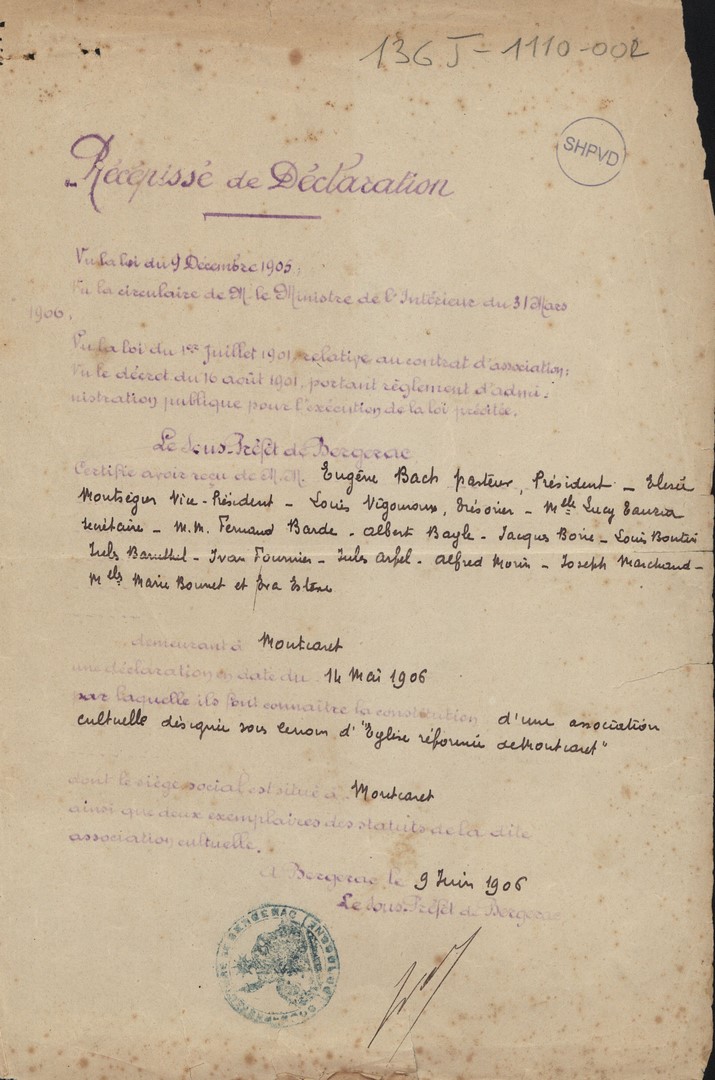 136 J - 1110-002
SHPVD
Récépissé de Déclaration
Vu la loi du 9 Décembre 1905;
Vu la circulaire de M. le Ministre de l'Intérieur du 31 Mars
1906;
Vu la loi du 1er Juillet 1901, relative au contrat d'association;
Vu le décret du 16 août 1901, portant règlement d'admi-
nistration publique pour l'exécution de la loi précitée.
Le Sous-Préfet de Bergerac
Certifie avoir reçu de M.M. Eugène Bach pasteur, Président - Elisée
Montségur Vice-Président - Louis Vigouroux, Trésorier - Melle Lucy
secrétaire - M.M. Fernand Barde - Albert Bayle - Jacques Borie - Louis
Jules - Ivan Fournier - Jules - Alfred Morin - Joseph Marchand -
Melles Marie Bonnet et Eva
demeurant à Montcaret
une déclaration en date du 14 Mai 1906
par laquelle ils font connaître la constitution d'une association
cultuelle désignée sous le nom d'"Eglise réformée de Montcaret"
dont le siège social est situé à Montcaret
ainsi que deux exemplaires des statuts de la dite
association cultuelle.
A Bergerac le 9 Juin 1906
Le Sous-Préfet de Bergerac
SOUS-PRÉFECTURE DE BERGERAC (DORDOGNE)